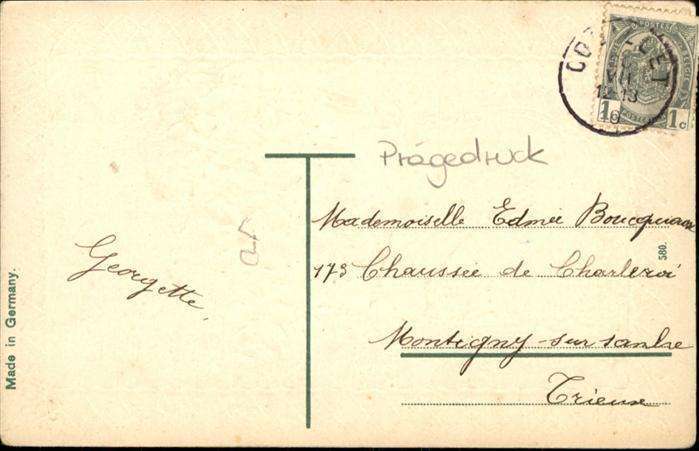 1c 1c
12-13
Prägedruck
Mademoiselle Edmée
173 Chaussée de Charleroi
Montigny-sur-sambre
Trieux
580.
Georgette,
Made in Germany.